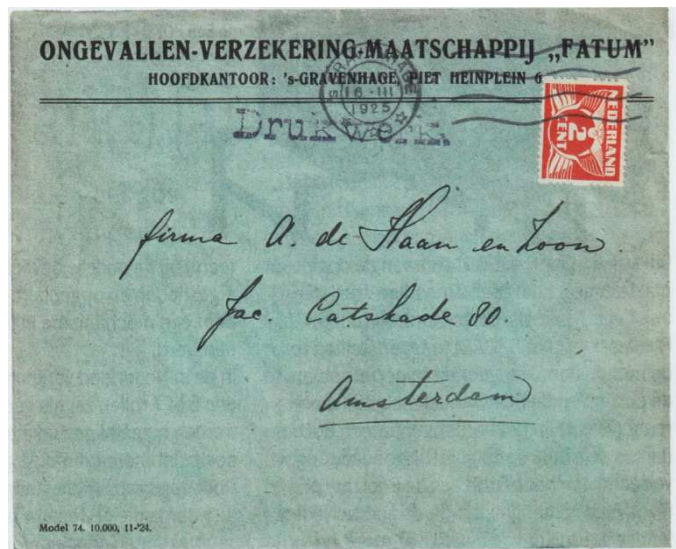 ONGEVALLEN-VERZEKERING-MAATSCHAPPIJ „FATUM”
HOOFDKANTOOR: 's-GRAVENHAGE, PIET HEINPLEIN 6
16 · III
1925
Drukwerk.
NEDERLAND
2
CENT
firma A. de Haan en Zoon.
Jac. Catskade 80.
Amsterdam
Model 74. 10.000, 11-'24.